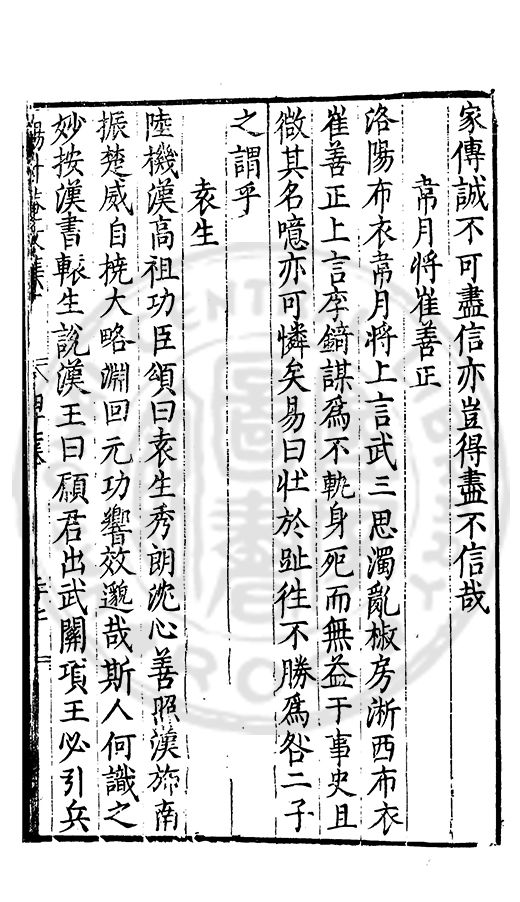 家傳誠不可盡信亦豈得盡不信哉
常月將崔善正
洛陽布衣常月將上言武三思濁亂椒房浙西布衣
崔善正上言李錡謀爲不軌身死而無益于事史且
微其名噫亦可憐矣易曰壯於趾徃不勝爲咎二子
之謂乎
袁生
陸機漢高祖功臣頌曰袁生秀朗沈心善照漢旆南
振楚威自撓大略淵回元功響效邈哉斯人何識之
妙按漢書轅生說漢王曰願君出武關項王必引兵